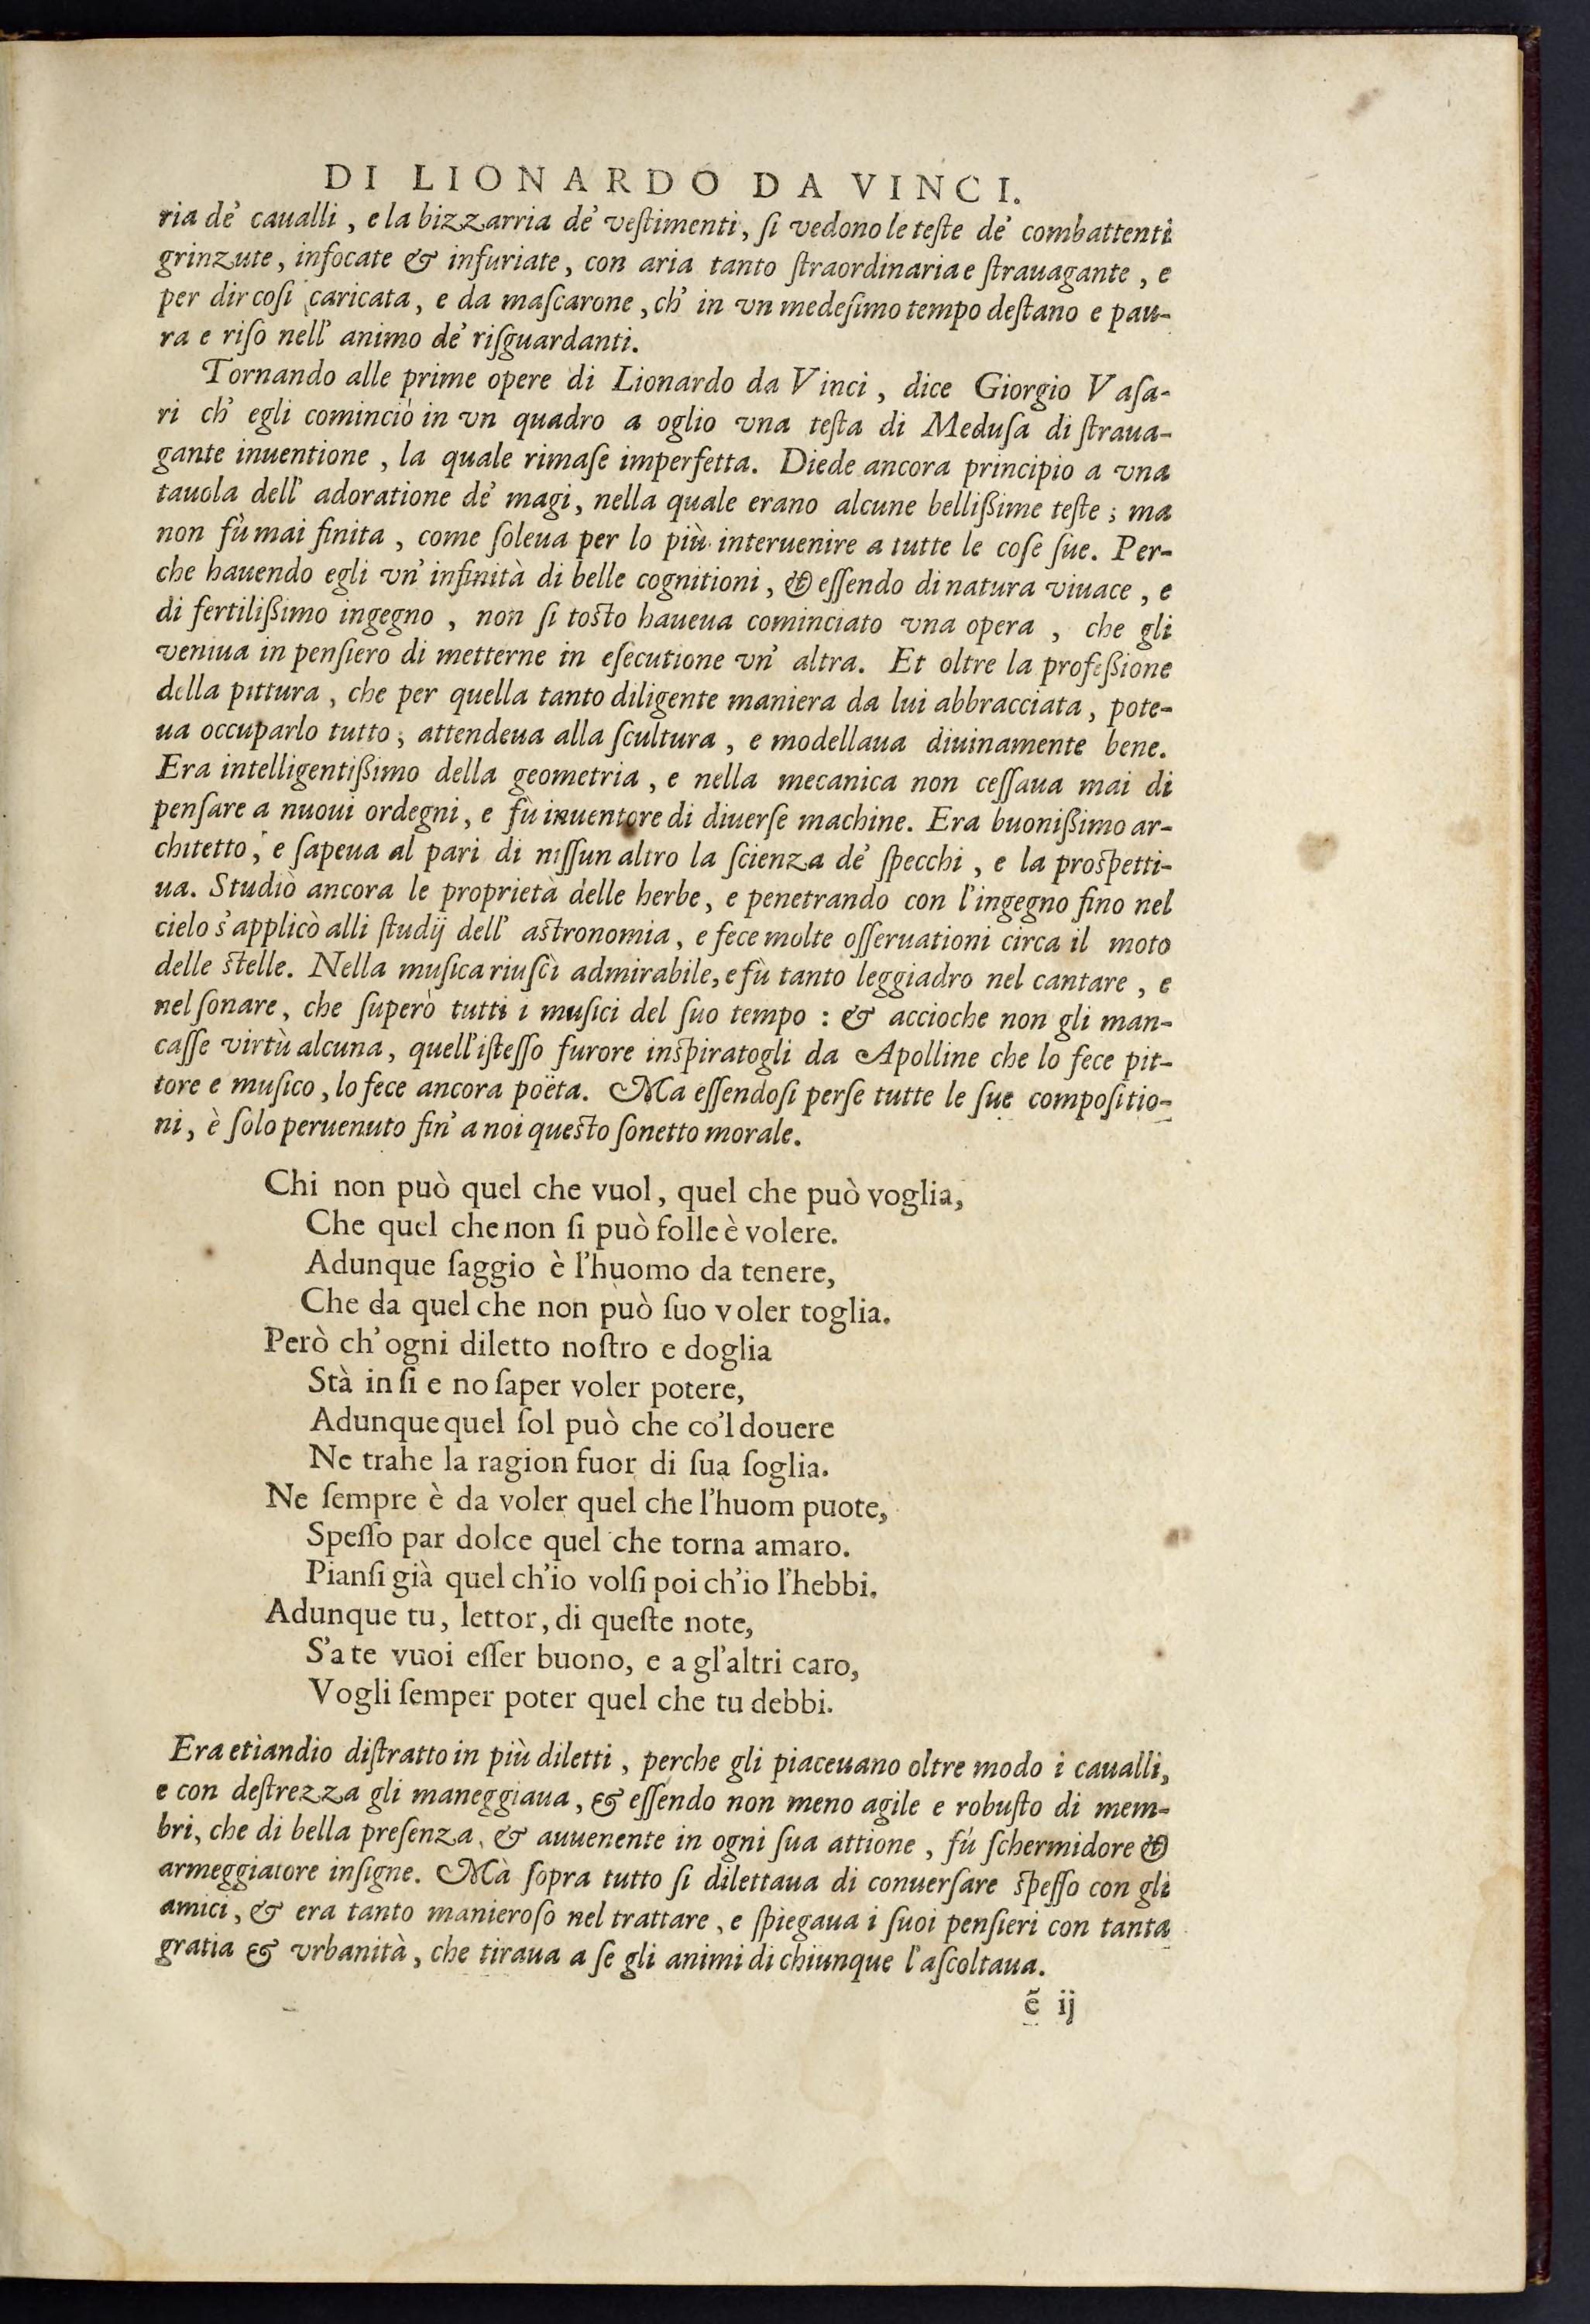 DI LIONARDO DA VINCI.
ria de' caualli, e la bizzarria de' veſtimenti, ſi vedono le teſte de' combattenti
grinzute, infocate & infuriate, con aria tanto ſtraordinaria e ſtrauagante, e
per dir coſi caricata, e da maſcarone, ch' in vn medeſimo tempo deſtano e pau-
ra e riſo nell' animo de' riſguardanti.
Tornando alle prime opere di Lionardo da Vinci, dice Giorgio Vaſa-
ri ch' egli cominciò in vn quadro a oglio vna teſta di Meduſa di ſtraua-
gante inuentione, la quale rimaſe imperfetta. Diede ancora principio a vna
tauola dell' adoratione de' magi, nella quale erano alcune belliſſime teſte; ma
non fù mai finita, come ſoleua per lo più interuenire a tutte le coſe ſue. Per-
che hauendo egli vn' infinità di belle cognitioni, & eſſendo di natura viuace, e
di fertiliſſimo ingegno, non ſi toſto haueua cominciato vna opera, che gli
veniua in penſiero di metterne in eſecutione vn' altra. Et oltre la profeſſione
della pittura, che per quella tanto diligente maniera da lui abbracciata, pote-
ua occuparlo tutto, attendeua alla ſcultura, e modellaua diuinamente bene.
Era intelligentiſſimo della geometria, e nella mecanica non ceſſaua mai di
penſare a nuoui ordegni, e fù inuentore di diuerſe machine. Era buoniſſimo ar-
chitetto, e ſapeua al pari di niſſun altro la ſcienza de' ſpecchi, e la proſpetti-
ua. Studiò ancora le proprietà delle herbe, e penetrando con l'ingegno fino nel
cielo s'applicò alli ſtudij dell' aſtronomia, e fece molte oſſeruationi circa il moto
delle ſtelle. Nella muſica riuſcì admirabile, e fù tanto leggiadro nel cantare, e
nel ſonare, che ſuperò tutti i muſici del ſuo tempo : & accioche non gli man-
caſſe virtù alcuna, quell'iſteſſo furore inſpiratogli da Apolline che lo fece pit-
tore e muſico, lo fece ancora poëta. Ma eſſendoſi perſe tutte le ſue compoſitio-
ni, è ſolo peruenuto fin' a noi queſto ſonetto morale.
Chi non può quel che vuol, quel che può voglia,
Che quel che non ſi può folle è volere.
Adunque ſaggio è l'huomo da tenere,
Che da quel che non può ſuo voler toglia.
Però ch' ogni diletto noſtro e doglia
Stà in ſi e no ſaper voler potere,
Adunque quel ſol può che co'l douere
Ne trahe la ragion fuor di ſua ſoglia.
Ne ſempre è da voler quel che l'huom puote,
Speſſo par dolce quel che torna amaro.
Pianſi già quel ch'io volſi poi ch'io l'hebbi.
Adunque tu, lettor, di queſte note,
S'a te vuoi eſſer buono, e a gl'altri caro,
Vogli ſemper poter quel che tu debbi.
Era etiandio diſtratto in più diletti, perche gli piaceuano oltre modo i caualli,
e con deſtrezza gli maneggiaua, & eſſendo non meno agile e robuſto di mem-
bri, che di bella preſenza, & auuenente in ogni ſua attione, fù ſchermidore &
armeggiatore inſigne. Mà ſopra tutto ſi dilettaua di conuerſare ſpeſſo con gli
amici, & era tanto manieroſo nel trattare, e ſpiegaua i ſuoi penſieri con tanta
gratia & vrbanità, che tiraua a ſe gli animi di chiunque l'aſcoltaua.
ẽ ij